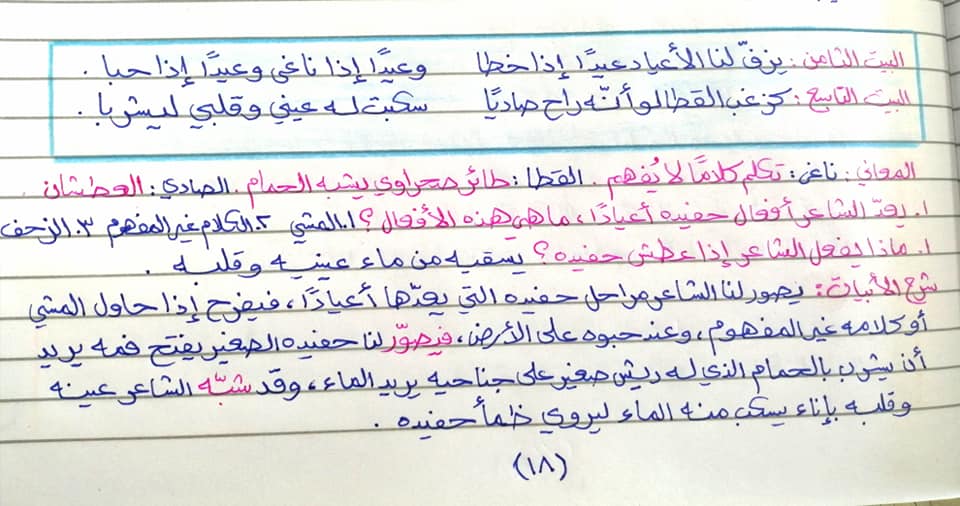 البيت الثامن: يزفّ لنا الأعياد عيدًا إذا خطا وعيدًا إذا ناغى وعيدًا إذا حبا .
البيت التاسع: كزغب القطا لو أنّه راح صاديًا سكبت له عيني وقلبي ليشربا .
المعاني: ناغى: تكلم كلامًا لا يُفهم . القطا: طائر صحراوي يشبه الحمام . الصادي: العطشان .
١. يعدّ الشاعر أفعال حفيده أعيادًا، ما هي هذه الأفعال؟ ١. المشي ٢. الكلام غير المفهوم ٣. الزحف
١. ماذا يفعل الشاعر إذا عطش حفيده؟ يسقيه من ماء عينيه وقلبه .
شرح الأبيات: يصور لنا الشاعر مراحل حفيده التي يعدّها أعيادًا، فيفرح إذا حاول المشي
أو كلامه غير المفهوم، وعند حبوه على الأرض، فيصوّر لنا حفيده الصغير يفتح فمه يريد
أن يشرب بالحمام الذي له ريش صغير على جناحيه يريد الماء، وقد شبّه الشاعر عينه
وقلبه بإناء يسكب منه الماء ليروي ظمأ حفيده .
(١٨)